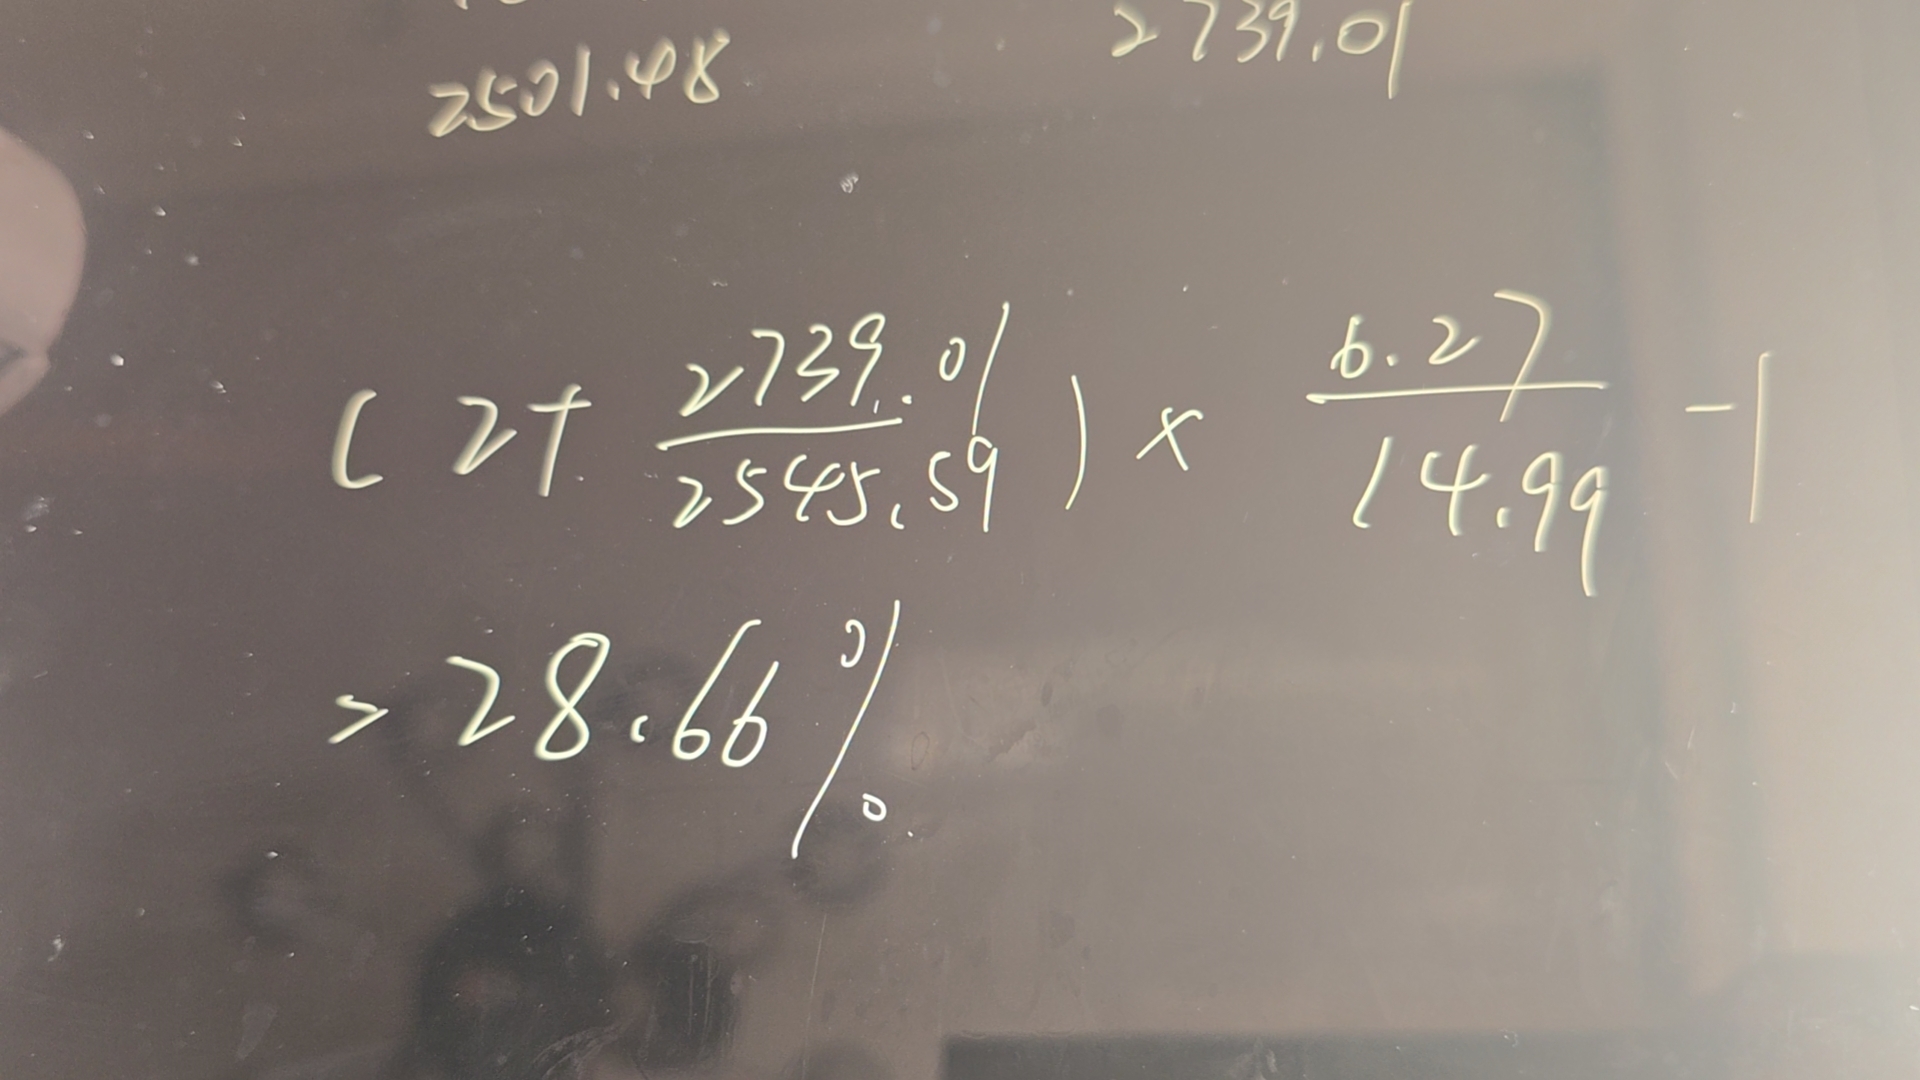 2501.48 2739.01
(2+ 2739.01/2545.59) × 6.27/14.99 -1
> 28.66%